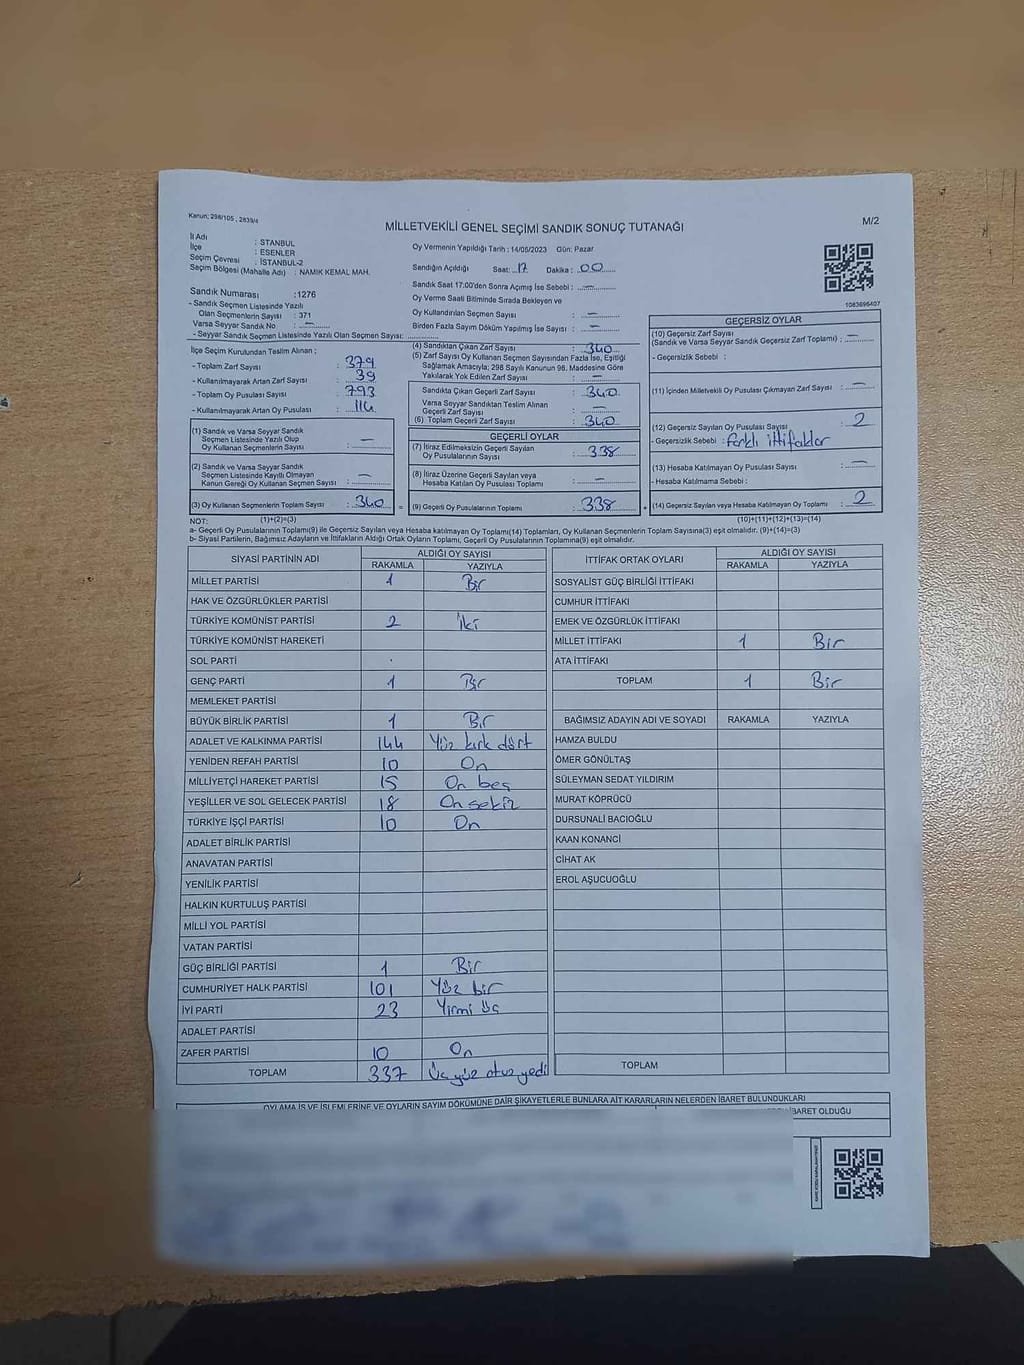 Kanun: 298/105 , 2839/4
M/2
MİLLETVEKİLİ GENEL SEÇİMİ SANDIK SONUÇ TUTANAĞI
İl Adı : İSTANBUL
İlçe : ESENLER
Seçim Çevresi : İSTANBUL-2
Seçim Bölgesi (Mahalle Adı) : NAMIK KEMAL MAH.
Sandık Numarası :1276
- Sandık Seçmen Listesinde Yazılı
Olan Seçmenlerin Sayısı : 371
Varsa Seyyar Sandık No : —
- Seyyar Sandık Seçmen Listesinde Yazılı Olan Seçmen Sayısı:
Oy Vermenin Yapıldığı Tarih : 14/05/2023 Gün: Pazar
Sandığın Açıldığı Saat: 17 Dakika : 00
Sandık Saat 17:00'den Sonra Açımış İse Sebebi : —
Oy Verme Saati Bitiminde Sırada Bekleyen ve
Oy Kullandırılan Seçmen Sayısı : —
Birden Fazla Sayım Döküm Yapılmış İse Sayısı : —
1083696407
İlçe Seçim Kurulundan Teslim Alınan ;
- Toplam Zarf Sayısı : 379
- Kullanılmayarak Artan Zarf Sayısı : 39
- Toplam Oy Pusulası Sayısı : 793
- Kullanılmayarak Artan Oy Pusulası : 114
(1) Sandık ve Varsa Seyyar Sandık
Seçmen Listesinde Yazılı Olup
Oy Kullanan Seçmenlerin Sayısı : —
(2) Sandık ve Varsa Seyyar Sandık
Seçmen Listesinde Kayıtlı Olmayan
Kanun Gereği Oy Kullanan Seçmen Sayısı : —
(3) Oy Kullanan Seçmenlerin Toplam Sayısı : 340
(4) Sandıktan Çıkan Zarf Sayısı : 340
(5) Zarf Sayısı Oy Kullanan Seçmen Sayısından Fazla İse, Eşitliği
Sağlamak Amacıyla; 298 Sayılı Kanunun 98. Maddesine Göre
Yakılarak Yok Edilen Zarf Sayısı : —
Sandıkta Çıkan Geçerli Zarf Sayısı : 340
Varsa Seyyar Sandıktan Teslim Alınan
Geçerli Zarf Sayısı : —
(6) Toplam Geçerli Zarf Sayısı : 340
GEÇERLİ OYLAR
(7) İtiraz Edilmeksizin Geçerli Sayılan
Oy Pusulalarının Sayısı : 338
(8) İtiraz Üzerine Geçerli Sayılan veya
Hesaba Katılan Oy Pusulası Toplamı : —
= (9) Geçerli Oy Pusulalarının Toplamı : 338
GEÇERSİZ OYLAR
(10) Geçersiz Zarf Sayısı
(Sandık ve Varsa Seyyar Sandık Geçersiz Zarf Toplamı) : —
- Geçersizlik Sebebi :
(11) İçinden Milletvekili Oy Pusulası Çıkmayan Zarf Sayısı : —
(12) Geçersiz Sayılan Oy Pusulası Sayısı : 2
- Geçersizlik Sebebi : Farklı ittifaklar
(13) Hesaba Katılmayan Oy Pusulası Sayısı : —
- Hesaba Katılmama Sebebi :
+ (14) Geçersiz Sayılan veya Hesaba Katılmayan Oy Toplamı : 2
NOT: (1)+(2)=(3) (10)+(11)+(12)+(13)=(14)
a- Geçerli Oy Pusulalarının Toplamı(9) ile Geçersiz Sayılan veya Hesaba katılmayan Oy Toplamı(14) Toplamları, Oy Kullanan Seçmenlerin Toplam Sayısına(3) eşit olmalıdır. (9)+(14)=(3)
b- Siyasi Partilerin, Bağımsız Adayların ve İttifakların Aldığı Ortak Oyların Toplamı, Geçerli Oy Pusulalarının Toplamına(9) eşit olmalıdır.
SİYASİ PARTİNİN ADI ALDIĞI OY SAYISI
RAKAMLA YAZIYLA
MİLLET PARTİSİ 1 Bir
HAK VE ÖZGÜRLÜKLER PARTİSİ
TÜRKİYE KOMÜNİST PARTİSİ 2 İki
TÜRKİYE KOMÜNİST HAREKETİ
SOL PARTİ
GENÇ PARTİ 1 Bir
MEMLEKET PARTİSİ
BÜYÜK BİRLİK PARTİSİ 1 Bir
ADALET VE KALKINMA PARTİSİ 144 Yüz kırk dört
YENİDEN REFAH PARTİSİ 10 On
MİLLİYETÇİ HAREKET PARTİSİ 15 On beş
YEŞİLLER VE SOL GELECEK PARTİSİ 18 On sekiz
TÜRKİYE İŞÇİ PARTİSİ 10 On
ADALET BİRLİK PARTİSİ
ANAVATAN PARTİSİ
YENİLİK PARTİSİ
HALKIN KURTULUŞ PARTİSİ
MİLLİ YOL PARTİSİ
VATAN PARTİSİ
GÜÇ BİRLİĞİ PARTİSİ 1 Bir
CUMHURİYET HALK PARTİSİ 101 Yüz bir
İYİ PARTİ 23 Yirmi üç
ADALET PARTİSİ
ZAFER PARTİSİ 10 On
TOPLAM 337 Üç yüz otuz yedi
İTTİFAK ORTAK OYLARI ALDIĞI OY SAYISI
RAKAMLA YAZIYLA
SOSYALİST GÜÇ BİRLİĞİ İTTİFAKI
CUMHUR İTTİFAKI
EMEK VE ÖZGÜRLÜK İTTİFAKI
MİLLET İTTİFAKI 1 Bir
ATA İTTİFAKI
TOPLAM 1 Bir
BAĞIMSIZ ADAYIN ADI VE SOYADI RAKAMLA YAZIYLA
HAMZA BULDU
ÖMER GÖNÜLTAŞ
SÜLEYMAN SEDAT YILDIRIM
MURAT KÖPRÜCÜ
DURSUNALİ BACIOĞLU
KAAN KONANCİ
CİHAT AK
EROL AŞUCUOĞLU
TOPLAM
OYLAMA İŞ VE İŞLEMLERİNE VE OYLARIN SAYIM DÖKÜMÜNE DAİR ŞİKAYETLERLE BUNLARA AİT KARARLARIN NELERDEN İBARET BULUNDUKLARI
İBARET OLDUĞU